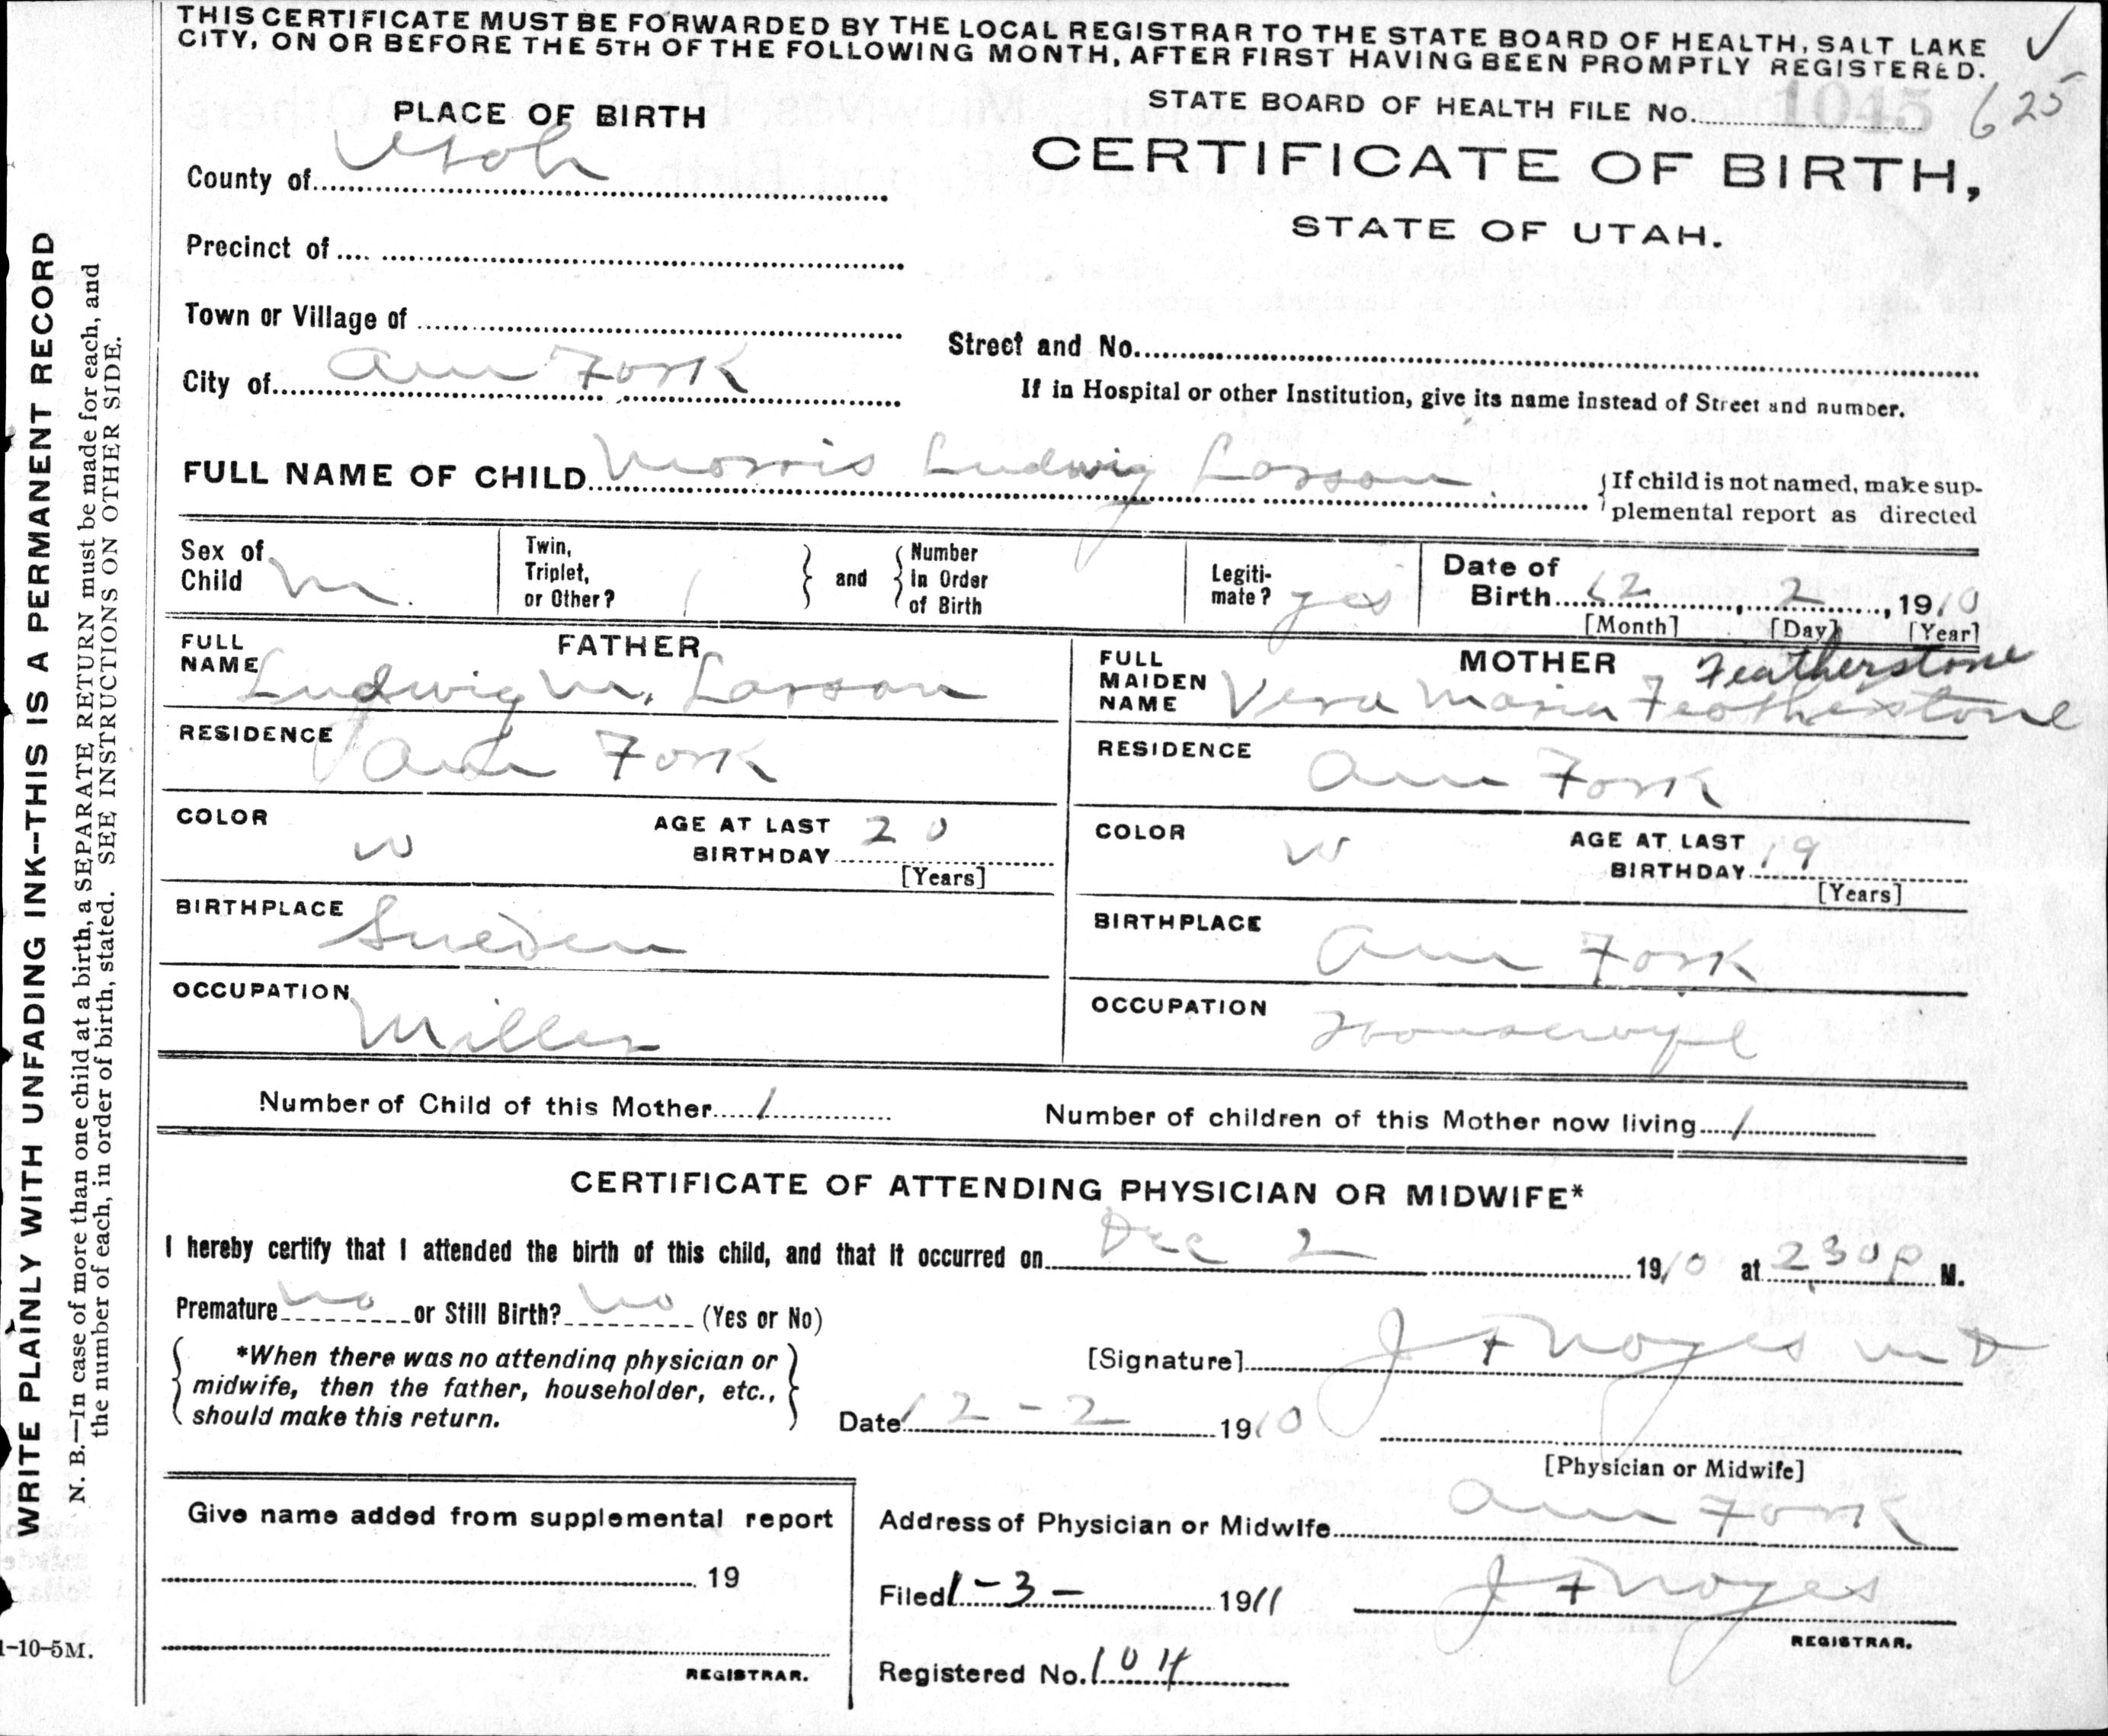 THIS CERTIFICATE MUST BE FORWARDED BY THE LOCAL REGISTRAR TO THE STATE BOARD OF HEALTH, SALT LAKE
CITY, ON OR BEFORE THE 5TH OF THE FOLLOWING MONTH, AFTER FIRST HAVING BEEN PROMPTLY REGISTERED.
STATE BOARD OF HEALTH FILE No. 1045 625
PLACE OF BIRTH
CERTIFICATE OF BIRTH,
STATE OF UTAH.
County of Utah
Precinct of
Town or Village of
Street and No.
City of Am Fork
If in Hospital or other Institution, give its name instead of Street and number.
FULL NAME OF CHILD Morris Ludwig Larson
If child is not named, make sup-
plemental report as directed
Sex of
Child M.
Twin,
Triplet,
or Other?
and
Number
in Order
of Birth
Legiti-
mate? yes
Date of
Birth 12, 2, 1910
[Month] [Day] [Year]
FATHER
FULL
NAME Ludwig M. Larson
RESIDENCE Am Fork
COLOR W
AGE AT LAST
BIRTHDAY 20
[Years]
BIRTHPLACE Sweden
OCCUPATION Miller
MOTHER Featherstone
FULL
MAIDEN
NAME Vera Maria Featherstone
RESIDENCE Am Fork
COLOR W
AGE AT LAST
BIRTHDAY 19
[Years]
BIRTHPLACE Am Fork
OCCUPATION Housewife
Number of Child of this Mother 1
Number of children of this Mother now living 1
CERTIFICATE OF ATTENDING PHYSICIAN OR MIDWIFE*
I hereby certify that I attended the birth of this child, and that it occurred on Dec 2 1910 at 2 30 P M.
Premature no or Still Birth? no (Yes or No)
*When there was no attending physician or
midwife, then the father, householder, etc.,
should make this return.
[Signature] J F Noyes M D
Date 12-2 1910
[Physician or Midwife]
Give name added from supplemental report
19
REGISTRAR.
Address of Physician or Midwife Am Fork
Filed 1-3- 1911 J F Noyes
REGISTRAR.
Registered No. 104
WRITE PLAINLY WITH UNFADING INK--THIS IS A PERMANENT RECORD
N. B.—In case of more than one child at a birth, a SEPARATE RETURN must be made for each, and
the number of each, in order of birth, stated. SEE INSTRUCTIONS ON OTHER SIDE.
1-10-5M.